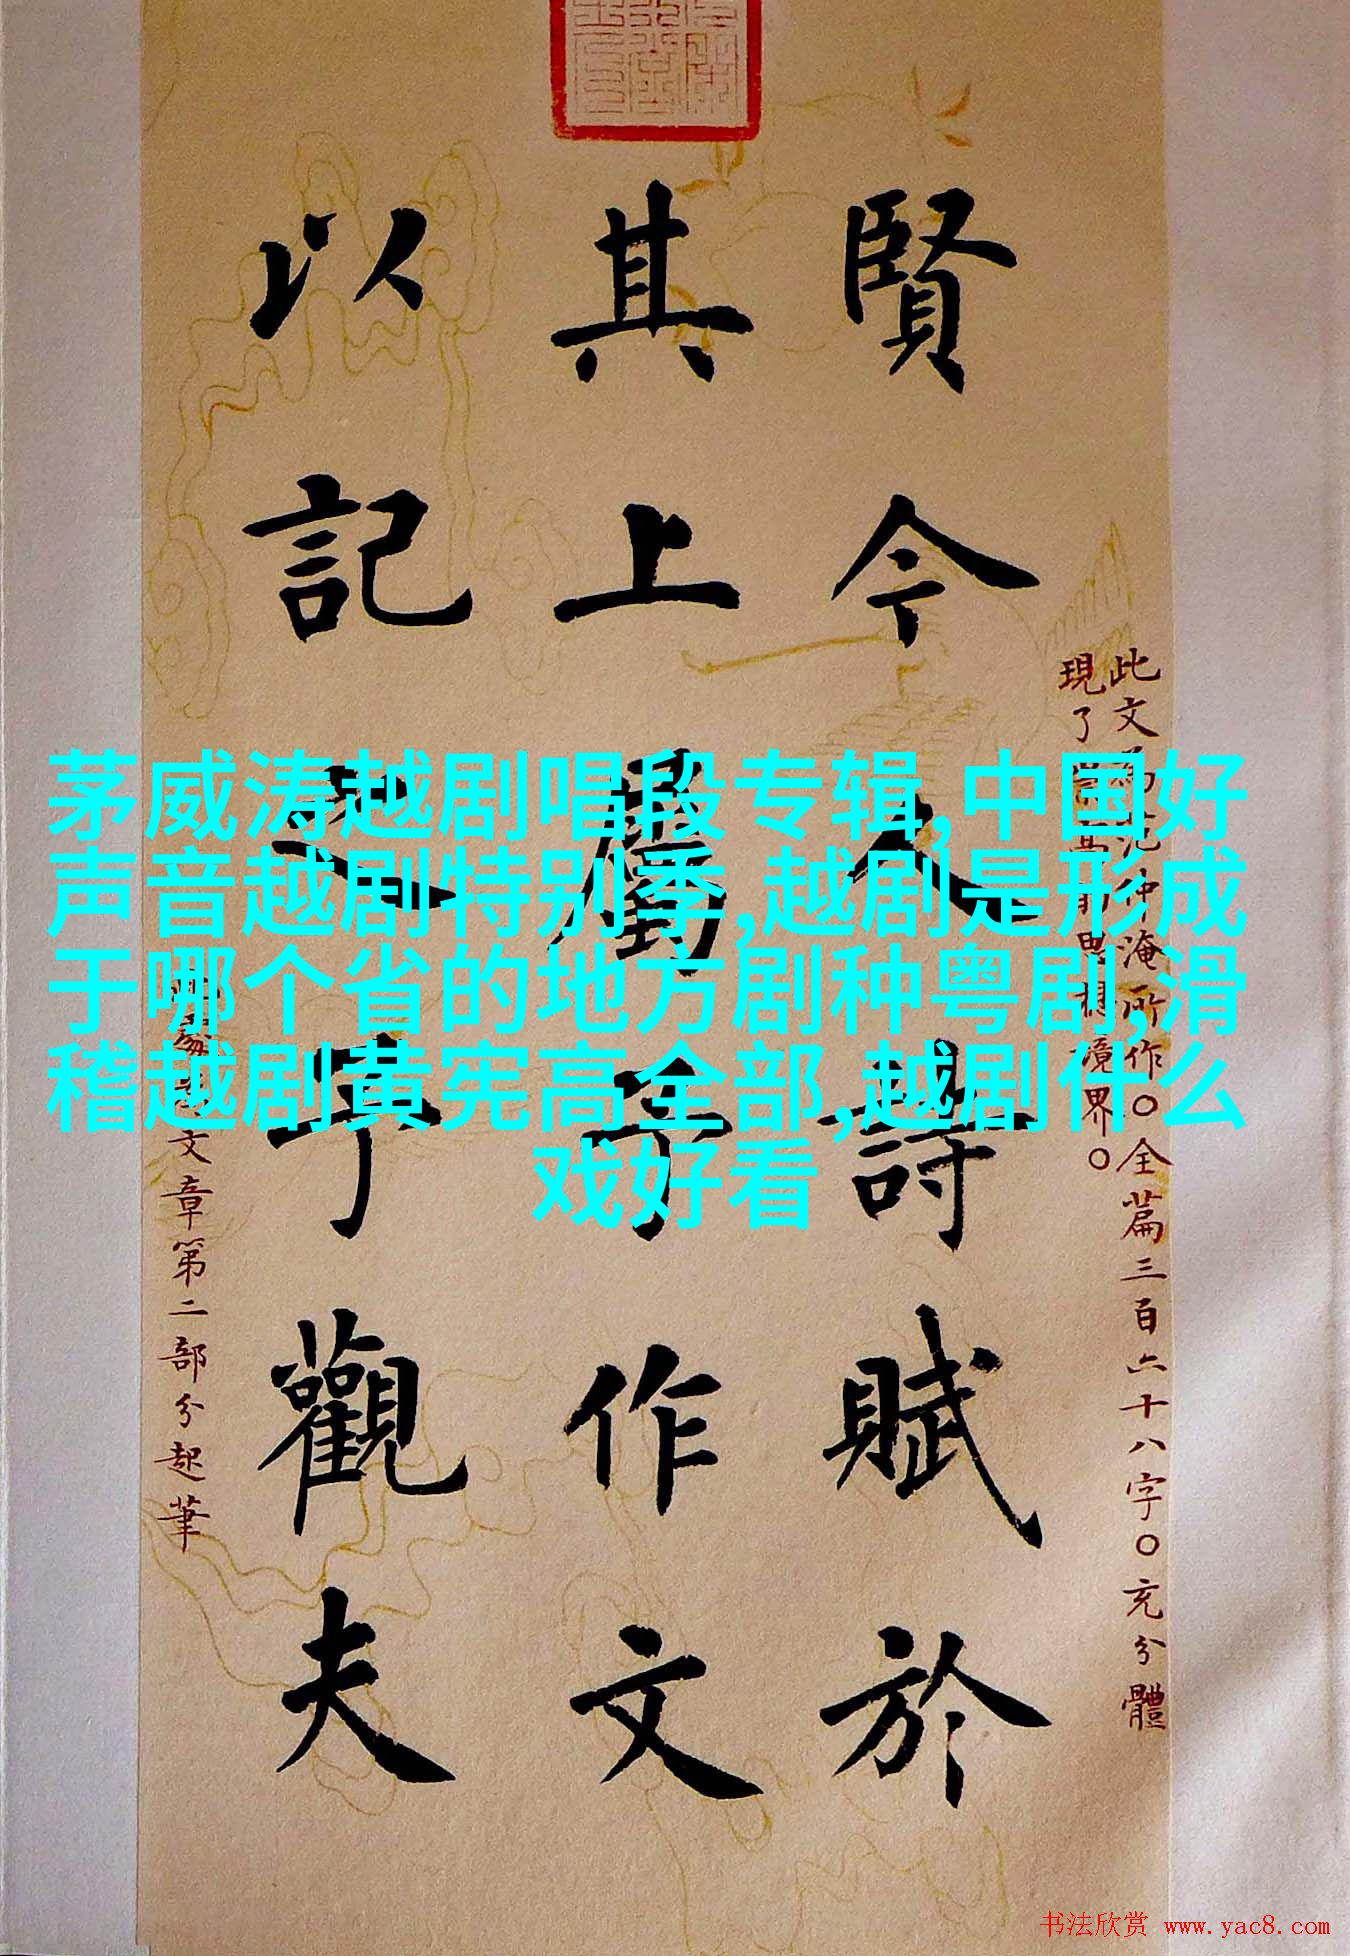 賢今人詩賦於
其上屬予作文
以記之予觀夫
此文 沖淹所作○全篇三百六十八字○充分體
現了 境界○
文章第二部分起筆
茅威涛越剧唱段专辑,中国好
声音越剧特别季,越剧是形成
于哪个省的地方剧种粤剧,滑
稽越剧黄宪高全部,越剧什么
戏好看
书法欣赏 www.yac8.com